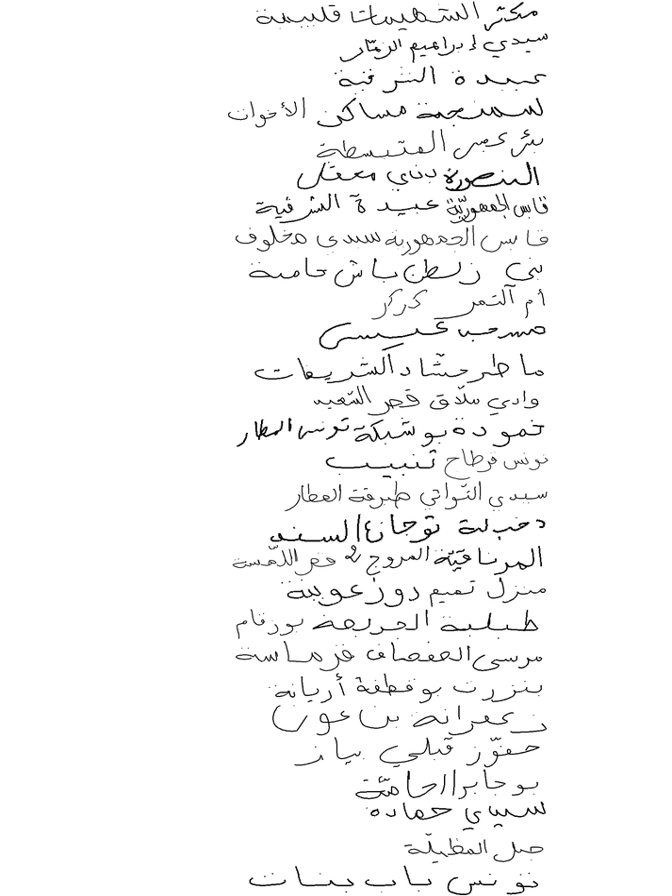 مكثر الشهيمات قليبية
سيدي إبراهيم الزهّار
عبيدة الشرقية
سمنجة مساكن الأخوات
بئر عمر الغتبسطة
المنصورة بناي معقل
قابس الجمهوريّة عبيدة الشرقية
قابس الجمهورية سيدي مخلوف
بني زلطن باش حامبة
أم الثمر كركر
عيسى
ماطر حشاد الشريعات
وادي ملاّق قصر السّعيد
حمودة بوشبكة تونس المطار
تونس قرطاج تنبيب
سيدي التواتي طبرقة العطار
دخيلة توجان السند
المرناقيّة المروج 2 قصر اللمسة
منزل تميم دوز عوينة
طبلبة الجريصة بورقام
مرسى الصفصاف قرماسة
بنزرت بوقطفة أريانة
زعفرانة بن عون
حفّوز قبلي بياز
بوجابر الحاميّة
سيدي حمادة
جبل المظيلّة
تونس باب بنات